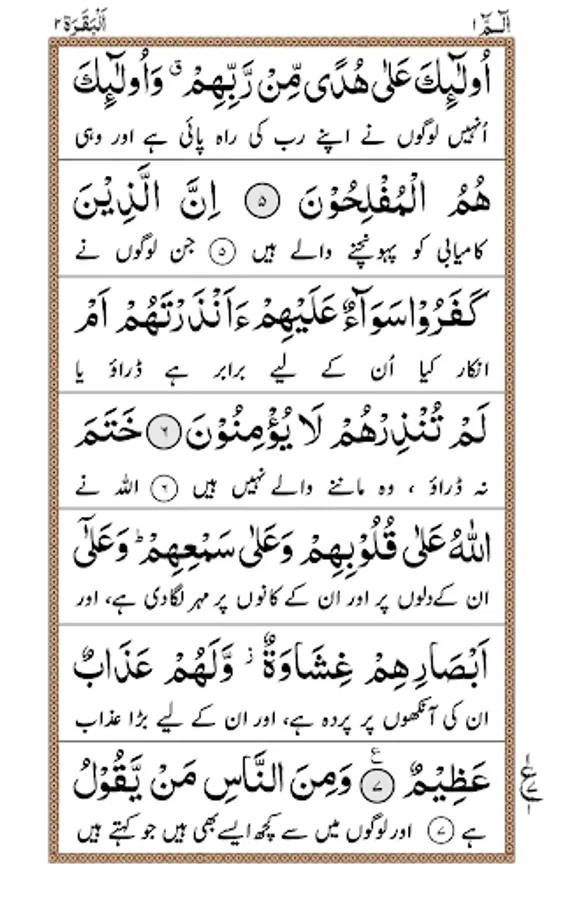 الٓـمّٓ ١
اَلْبَقَرَة ٢
اُولٰٓئِكَ عَلٰى هُدًى مِّنْ رَّبِّهِمْ ۗ وَاُولٰٓئِكَ
اُنہیں لوگوں نے اپنے رب کی راہ پائی ہے اور وہی
هُمُ الْمُفْلِحُوْنَ ۵ اِنَّ الَّذِيْنَ
کامیابی کو پہونچنے والے ہیں ۵ جن لوگوں نے
كَفَرُوْا سَوَآءٌ عَلَيْهِمْ ءَاَنْذَرْتَهُمْ اَمْ
انکار کیا اُن کے لیے برابر ہے ڈراؤ یا
لَمْ تُنْذِرْهُمْ لَا يُؤْمِنُوْنَ ۶ خَتَمَ
نہ ڈراؤ ، وہ ماننے والے نہیں ہیں ۶ اللہ نے
اللّٰهُ عَلٰى قُلُوْبِهِمْ وَعَلٰى سَمْعِهِمْ ؕ وَعَلٰٓى
ان کے دلوں پر اور ان کے کانوں پر مہر لگا دی ہے، اور
اَبْصَارِهِمْ غِشَاوَةٌ ؗ وَّلَهُمْ عَذَابٌ
ان کی آنکھوں پر پردہ ہے، اور ان کے لیے بڑا عذاب
عَظِيْمٌ ۷ ع وَمِنَ النَّاسِ مَنْ يَّقُوْلُ
ہے ۷ اور لوگوں میں سے کچھ ایسے بھی ہیں جو کہتے ہیں